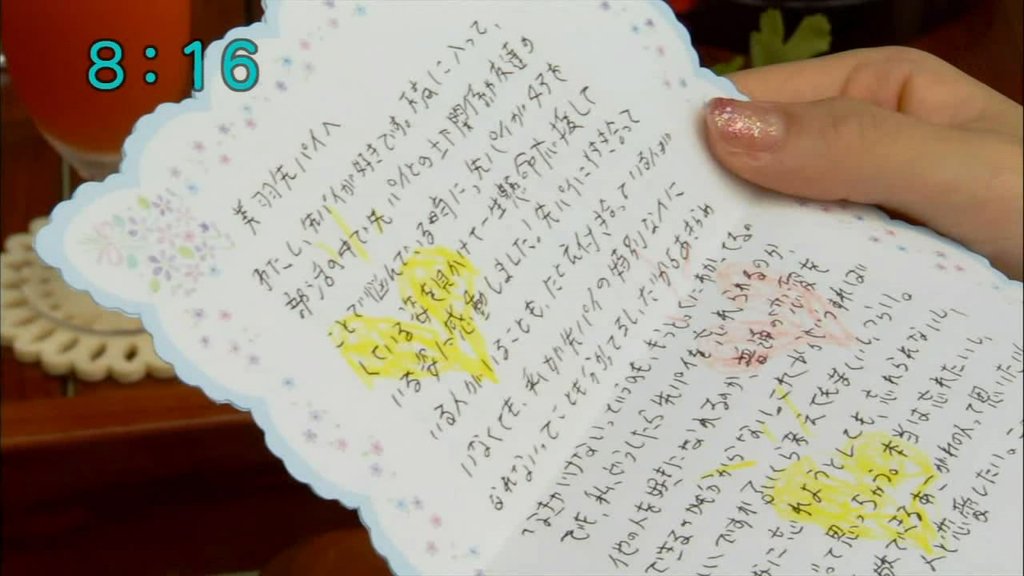 8:16
美羽先パイへ
わたし 先パイが好きです。高校に入って、
部活の中で先パイとの上下関係や友達の
ことで悩んでいる時に、先パイが
している姿を見かけて一生懸命応援して
いる姿に感動しました。先パイに付き合って
いる人がいることも、たとえ付き合っている人が
いなくても、私が先パイの特別な人に
なれないってことも分かってるし、だからあきらめ
なきゃいけないっていうのも、
でも、私どうしたら先パイを忘れられるのか
他の人を好きになれるのか 恋を
できるのか分からない。これからどうすれば
いいですか。いくら考えても苦しい、つらい。
忘れようとしても、忘れられないし、
って思っちゃう。本当は忘れたいし、
敬できるあこがれの人って思いた
ど恋愛したい。